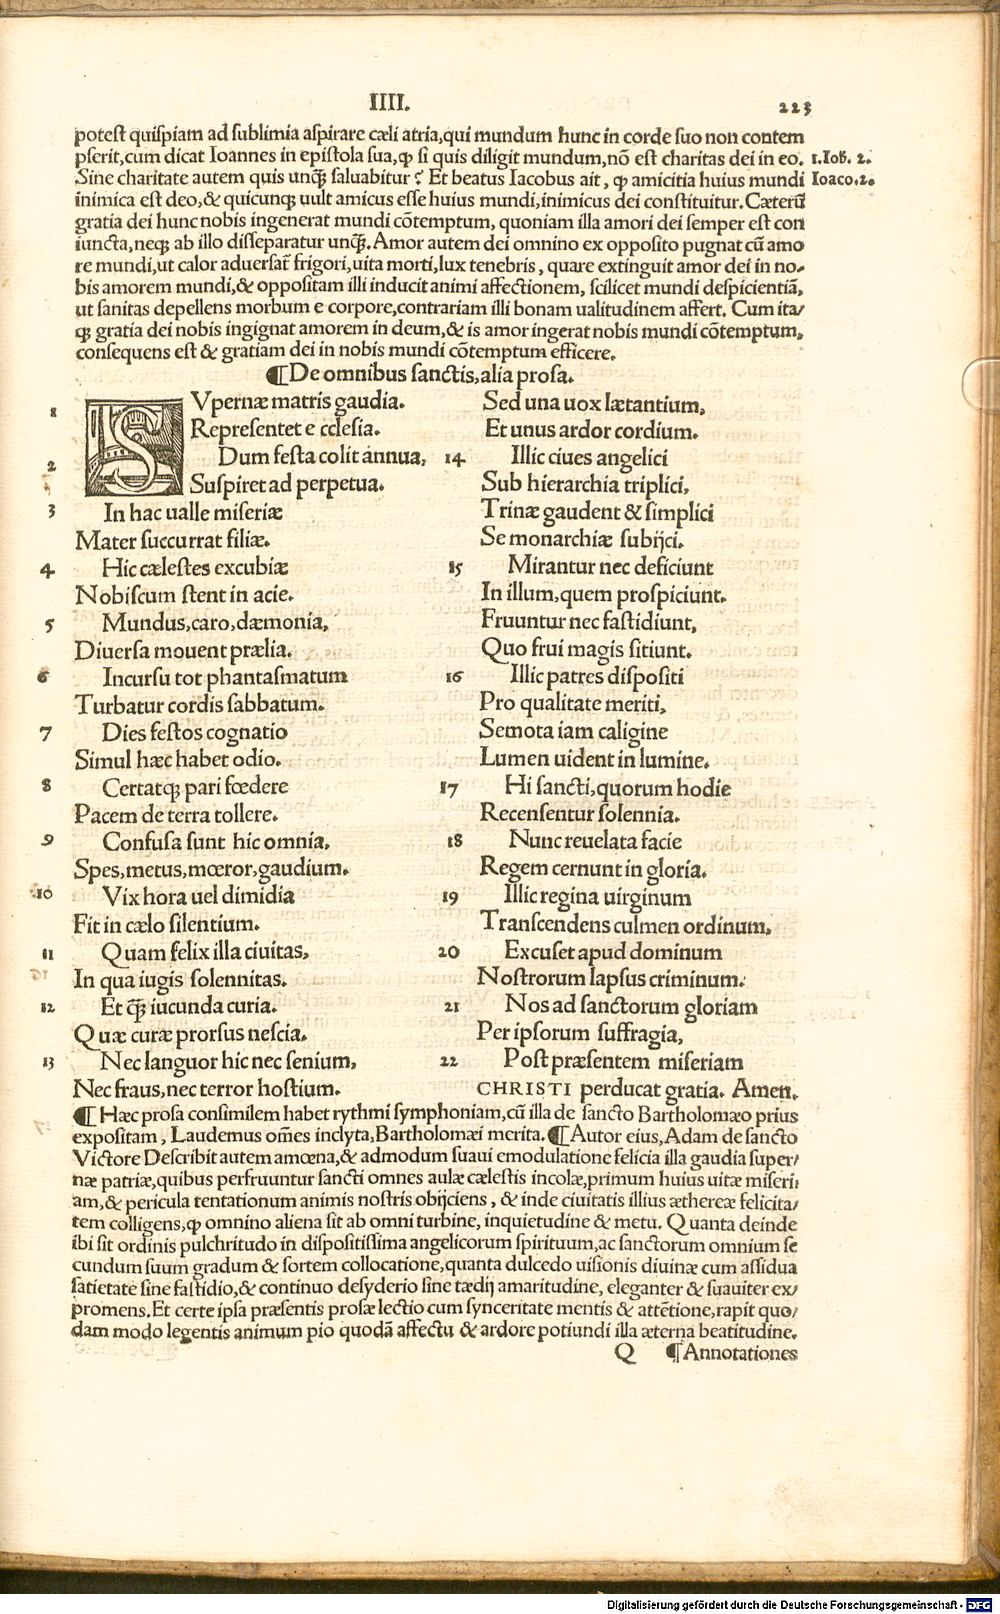 IIII.
223
potest quispiam ad sublimia aspirare cæli atria,qui mundum hunc in corde suo non contem
pserit,cum dicat Ioannes in epistola sua,ꝙ si quis diligit mundum,nõ est charitas dei in eo.
1.Ioh. 2.
Sine charitate autem quis unq̃ saluabitur? Et beatus Iacobus ait, ꝙ amicitia huius mundi
Iaco.2.
inimica est deo,& quicunqꝫ uult amicus esse huius mundi,inimicus dei constituitur. Cæterũ
gratia dei hunc nobis ingenerat mundi cõtemptum, quoniam illa amori dei semper est con
iuncta,neqꝫ ab illo disseparatur unq̃. Amor autem dei omnino ex opposito pugnat cũ amo
re mundi,ut calor aduersat̃ frigori,uita morti,lux tenebris, quare extinguit amor dei in no-
bis amorem mundi,& oppositam illi inducit animi affectionem, scilicet mundi despicientiã,
ut sanitas depellens morbum e corpore,contrariam illi bonam ualitudinem affert. Cum ita/
qꝫ gratia dei nobis ingignat amorem in deum,& is amor ingerat nobis mundi cõtemptum,
consequens est & gratiam dei in nobis mundi cõtemptum efficere.
¶De omnibus sanctis,alia prosa.
1 SVpernæ matris gaudia.
Repræsentet e cclesia.
2 Dum festa colit annua,
Suspiret ad perpetua.
3 In hac ualle miseriæ
Mater succurrat filiæ.
4 Hic cælestes excubiæ
Nobiscum stent in acie.
5 Mundus,caro,dæmonia,
Diuersa mouent prælia.
6 Incursu tot phantasmatum
Turbatur cordis sabbatum.
7 Dies festos cognatio
Simul hæc habet odio.
8 Certatqꝫ pari fœdere
Pacem de terra tollere.
9 Confusa sunt hic omnia,
Spes,metus,mœror,gaudium.
10 Vix hora uel dimidia
Fit in cælo silentium.
11 Quam felix illa ciuitas,
In qua iugis solennitas.
12 Et q̃ iucunda curia.
Quæ curæ prorsus nescia.
13 Nec languor hic nec senium,
Nec fraus,nec terror hostium.
Sed una uox lætantium,
Et unus ardor cordium.
14 Illic ciues angelici
Sub hierarchia triplici,
Trinæ gaudent & simplici
Se monarchiæ subijci.
15 Mirantur nec deficiunt
In illum,quem prospiciunt.
Fruuntur nec fastidiunt,
Quo frui magis sitiunt.
16 Illic patres dispositi
Pro qualitate meriti,
Semota iam caligine
Lumen uident in lumine.
17 Hi sancti,quorum hodie
Recensentur solennia.
18 Nunc reuelata facie
Regem cernunt in gloria.
19 Illic regina uirginum
Transcendens culmen ordinum,
20 Excuset apud dominum
Nostrorum lapsus criminum.
21 Nos ad sanctorum gloriam
Per ipsorum suffragia,
22 Post præsentem miseriam
CHRISTI perducat gratia. Amen.
¶Hæc prosa consimilem habet rythmi symphoniam,cũ illa de sancto Bartholomæo prius
expositam, Laudemus om̃es inclyta,Bartholomæi merita. ¶Autor eius,Adam de sancto
Victore Describit autem amœna,& admodum suaui emodulatione felicia illa gaudia super/
næ patriæ,quibus perfruuntur sancti omnes aulæ cælestis incolæ,primum huius uitæ miseri
am,& pericula tentationum animis nostris obijciens, & inde ciuitatis illius æthereæ felicita/
tem colligens,ꝙ omnino aliena sit ab omni turbine, inquietudine & metu. Quanta deinde
ibi sit ordinis pulchritudo in dispositissima angelicorum spirituum,ac sanctorum omnium se
cundum suum gradum & sortem collocatione,quanta dulcedo uisionis diuinæ cum assidua
satietate sine fastidio,& continuo desyderio sine tædij amaritudine, eleganter & suauiter ex/
promens. Et certe ipsa præsentis prosæ lectio cum synceritate mentis & attẽtione,rapit quo/
dam modo legentis animum pio quodã affectu & ardore potiundi illa æterna beatitudine.
Q ¶Annotationes
Digitalisierung gefördert durch die Deutsche Forschungsgemeinschaft - DFG